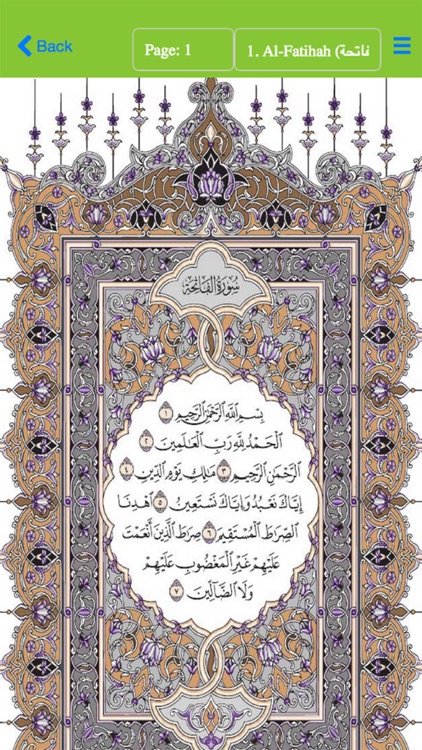 Back
Page: 1
1. Al-Fatihah (فاتحة
سُورَةُ الفَاتِحَةِ
بِسْمِ اللَّهِ الرَّحْمَٰنِ الرَّحِيمِ ١
الْحَمْدُ لِلَّهِ رَبِّ الْعَالَمِينَ ٢
الرَّحْمَٰنِ الرَّحِيمِ ٣ مَالِكِ يَوْمِ الدِّينِ ٤
إِيَّاكَ نَعْبُدُ وَإِيَّاكَ نَسْتَعِينُ ٥ اهْدِنَا
الصِّرَاطَ الْمُسْتَقِيمَ ٦ صِرَاطَ الَّذِينَ أَنْعَمْتَ
عَلَيْهِمْ غَيْرِ الْمَغْضُوبِ عَلَيْهِمْ
وَلَا الضَّالِّينَ ٧